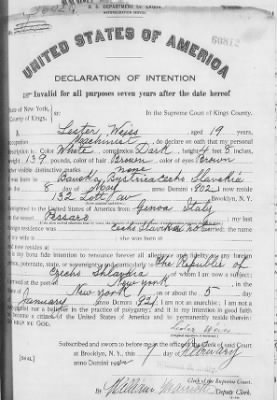 U. S. DEPARTMENT OF LABOR
NATURALIZATION SERVICE
60812
UNITED STATES OF AMERICA
DECLARATION OF INTENTION
Invalid for all purposes seven years after the date hereof
State of New York,
County of Kings.
In the Supreme Court of Kings County.
I, Lester Weiss aged 19 years,
occupation Machinist, do declare on oath that my personal
description is: Color White, complexion Dark, height 4 feet 8 inches,
weight 139 pounds, color of hair Brown color of eyes Brown
other visible distinctive marks none
Banska Bystrica Cecho Slavakia
on the 8 day of May anno Domini 902; I now reside
at 32 Lott av Brooklyn, N. Y.
I emigrated to the United States of America from Genoa Italy
on the vessel Pessaro; my last
foreign residence was Checho Slavikia; I am not married; the name
of my wife is; she was born at
and now resides at
It is my bona fide intention to renounce forever all allegiance and fidelity to any foreign
prince, potentate, state, or sovereignty, and particularly to The Republic of
Czecho Slavakia of whom I am now a subject;
I arrived at the port of New York in the
State of New York on or about the 5 day
of January anno Domini 921; I am not an anarchist; I am not a
polygamist nor a believer in the practice of polygamy; and it is my intention in good faith
to become a citizen of the United States of America and to permanently reside therein:
SO HELP ME GOD.
Lester Weiss
Subscribed and sworn to before me in the office of the Clerk of said Court
at Brooklyn, N. Y., this 7 day of February
[SEAL] anno Domini
Clerk of the Supreme Court.
By William Deputy Clerk.